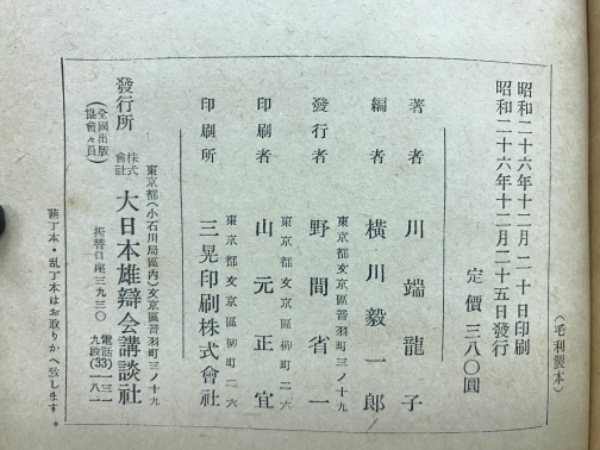 (毛利製本)
昭和二十六年十二月二十日印刷
昭和二十六年十二月二十五日發行
定價 三八〇圓
著者 川端龍子
編者 横川毅一郎
東京都文京區音羽町三ノ十九
發行者 野間省一
東京都文京區柳町二六
印刷者 山元正宜
東京都文京區柳町二六
印刷所 三晃印刷株式會社
東京都(小石川局區内)文京區音羽町三ノ十九
發行所 株式會社 大日本雄辯会講談社
(全國出版協會々員)
振替口座三九三〇 電話九段(33)一三一 一八一
落丁本・乱丁本はお取りかへ致します。